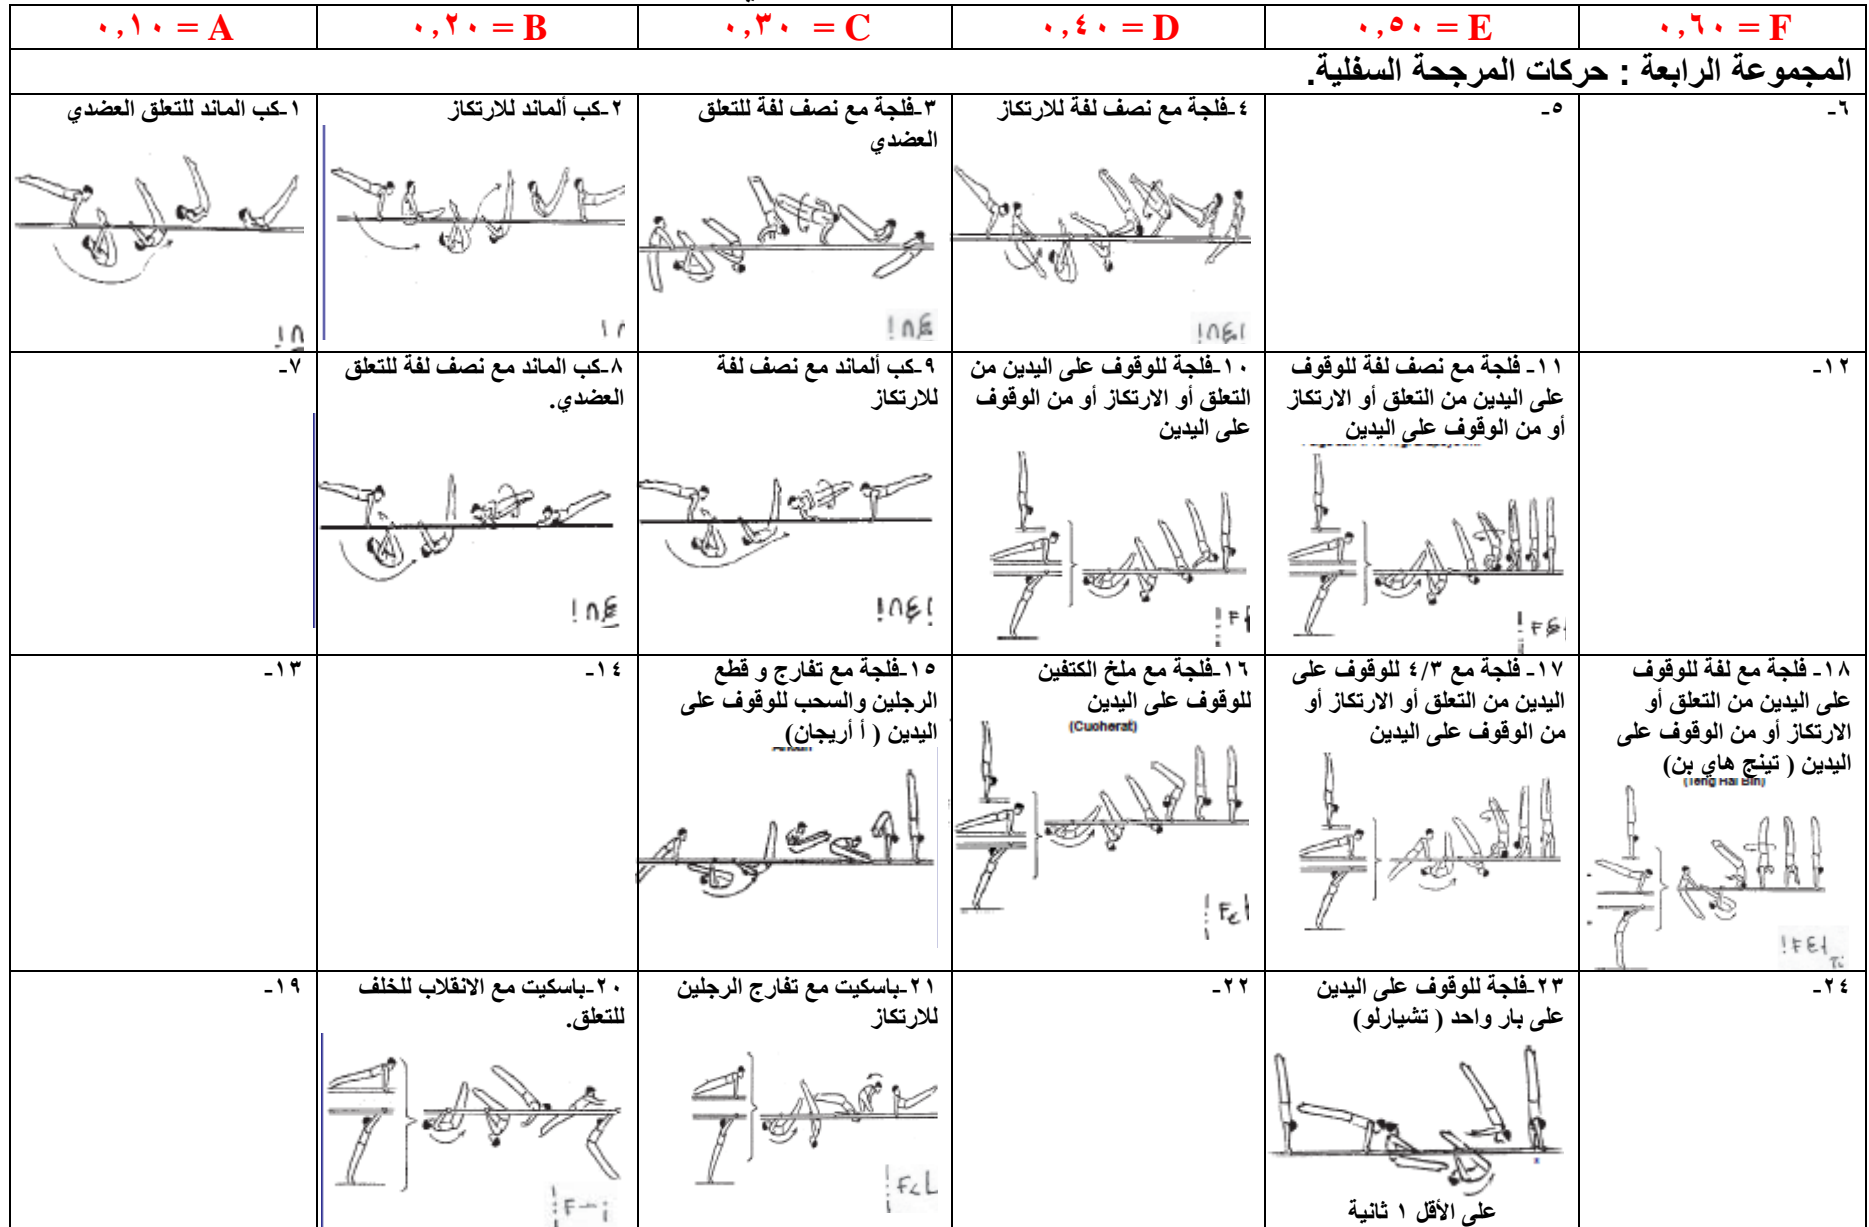 ٠,١٠ = A
٠,٢٠ = B
٠,٣٠ = C
٠,٤٠ = D
٠,٥٠ = E
٠,٦٠ = F
المجموعة الرابعة : حركات المرجحة السفلية.
١-كب الماند للتعلق العضدي
٢-كب ألماند للارتكاز
٣-فلجة مع نصف لفة للتعلق
العضدي
٤-فلجة مع نصف لفة للارتكاز
٥-
٦-
٧-
٨-كب الماند مع نصف لفة للتعلق
العضدي.
٩-كب ألماند مع نصف لفة
للارتكاز
١٠-فلجة للوقوف على اليدين من
التعلق أو الارتكاز أو من الوقوف
على اليدين
١١- فلجة مع نصف لفة للوقوف
على اليدين من التعلق أو الارتكاز
أو من الوقوف على اليدين
١٢-
١٣-
١٤-
١٥-فلجة مع تفارج و قطع
الرجلين والسحب للوقوف على
اليدين ( أ أريجان)
١٦-فلجة مع ملخ الكتفين
للوقوف على اليدين
(Cuoherat)
١٧- فلجة مع ٤/٣ للوقوف على
اليدين من التعلق أو الارتكاز أو
من الوقوف على اليدين
١٨- فلجة مع لفة للوقوف
على اليدين من التعلق أو
الارتكاز أو من الوقوف على
اليدين ( تينج هاي بن)
(Teng Hai Bin)
١٩-
٢٠-باسكيت مع الانقلاب للخلف
للتعلق.
٢١-باسكيت مع تفارج الرجلين
للارتكاز
٢٢-
٢٣-فلجة للوقوف على اليدين
على بار واحد ( تشيارلو)
على الأقل ١ ثانية
٢٤-